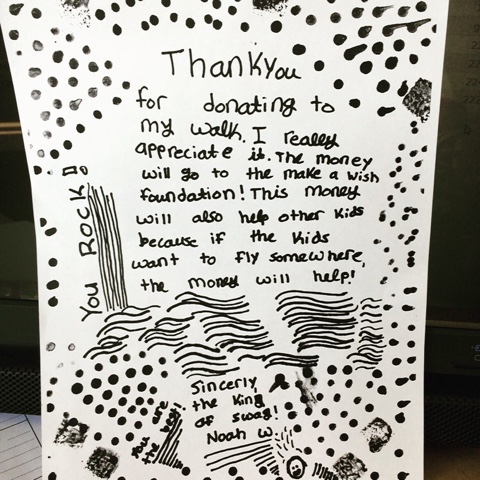 Thankyou
for donating to
my walk. I really
appreciate it. The money
will go to the make a wish
foundation! This money
will also help other kids
because if the kids
want to fly somewhere,
the money will help!
You ROCK!
Sincerly,
the King
of swag!
Noah W.
You are
the best!